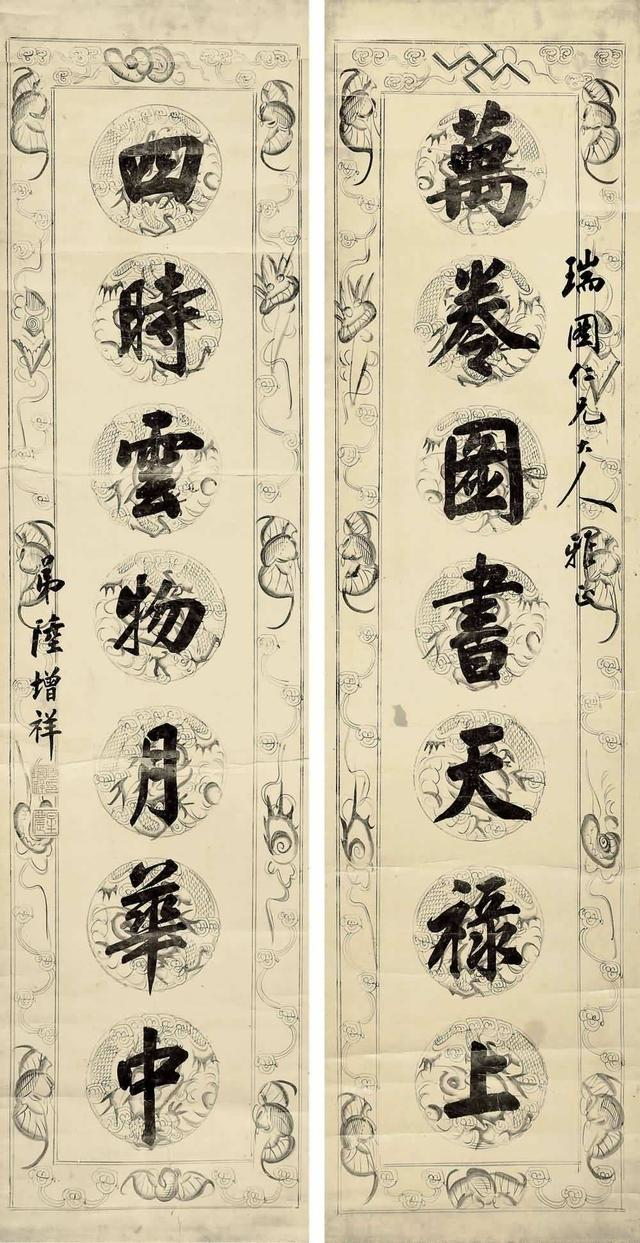 萬卷圖書天祿上
瑞圖仁兄大人雅正
四時雲物月華中
弟陸增祥